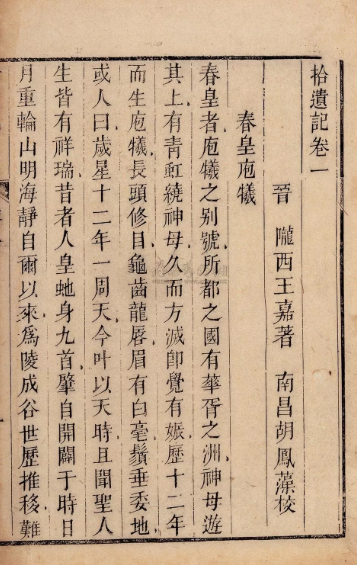 拾遺記卷一
晉 隴西王嘉著 南昌胡鳳藻校
春皇庖犧
春皇者庖犧之别號所都之國有華胥之洲神母遊
其上有青虹繞神母久而方滅卽覺有娠歷十二年
而生庖犧長頭修目龜齒龍脣眉有白毫鬚垂委地
或人曰歲星十二年一周天今叶以天時且聞聖人
生皆有祥瑞昔者人皇蛇身九首肇自開闢于時日
月重輪山明海靜自爾以來爲陵成谷世歷推移難